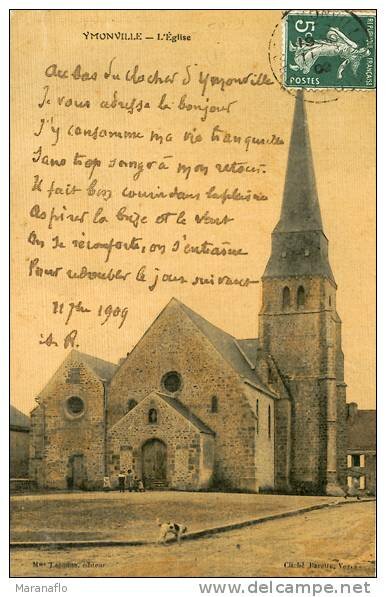 YMONVILLE — L'Église
5c
POSTES
Au bas du clocher d'Ymonville
Je vous adresse le bonjour
J'y consomme ma vie tranquille
Sans trop songer à mon retour.
Il fait bon courir dans la plaine
Aspirer la brise et le vent
On se réconforte, on s'entraine
Pour redoubler le jour suivant
11 7bre 1909
R.
Mme éditeur
Cliché
Maranaflo
http://www.delcampe.net